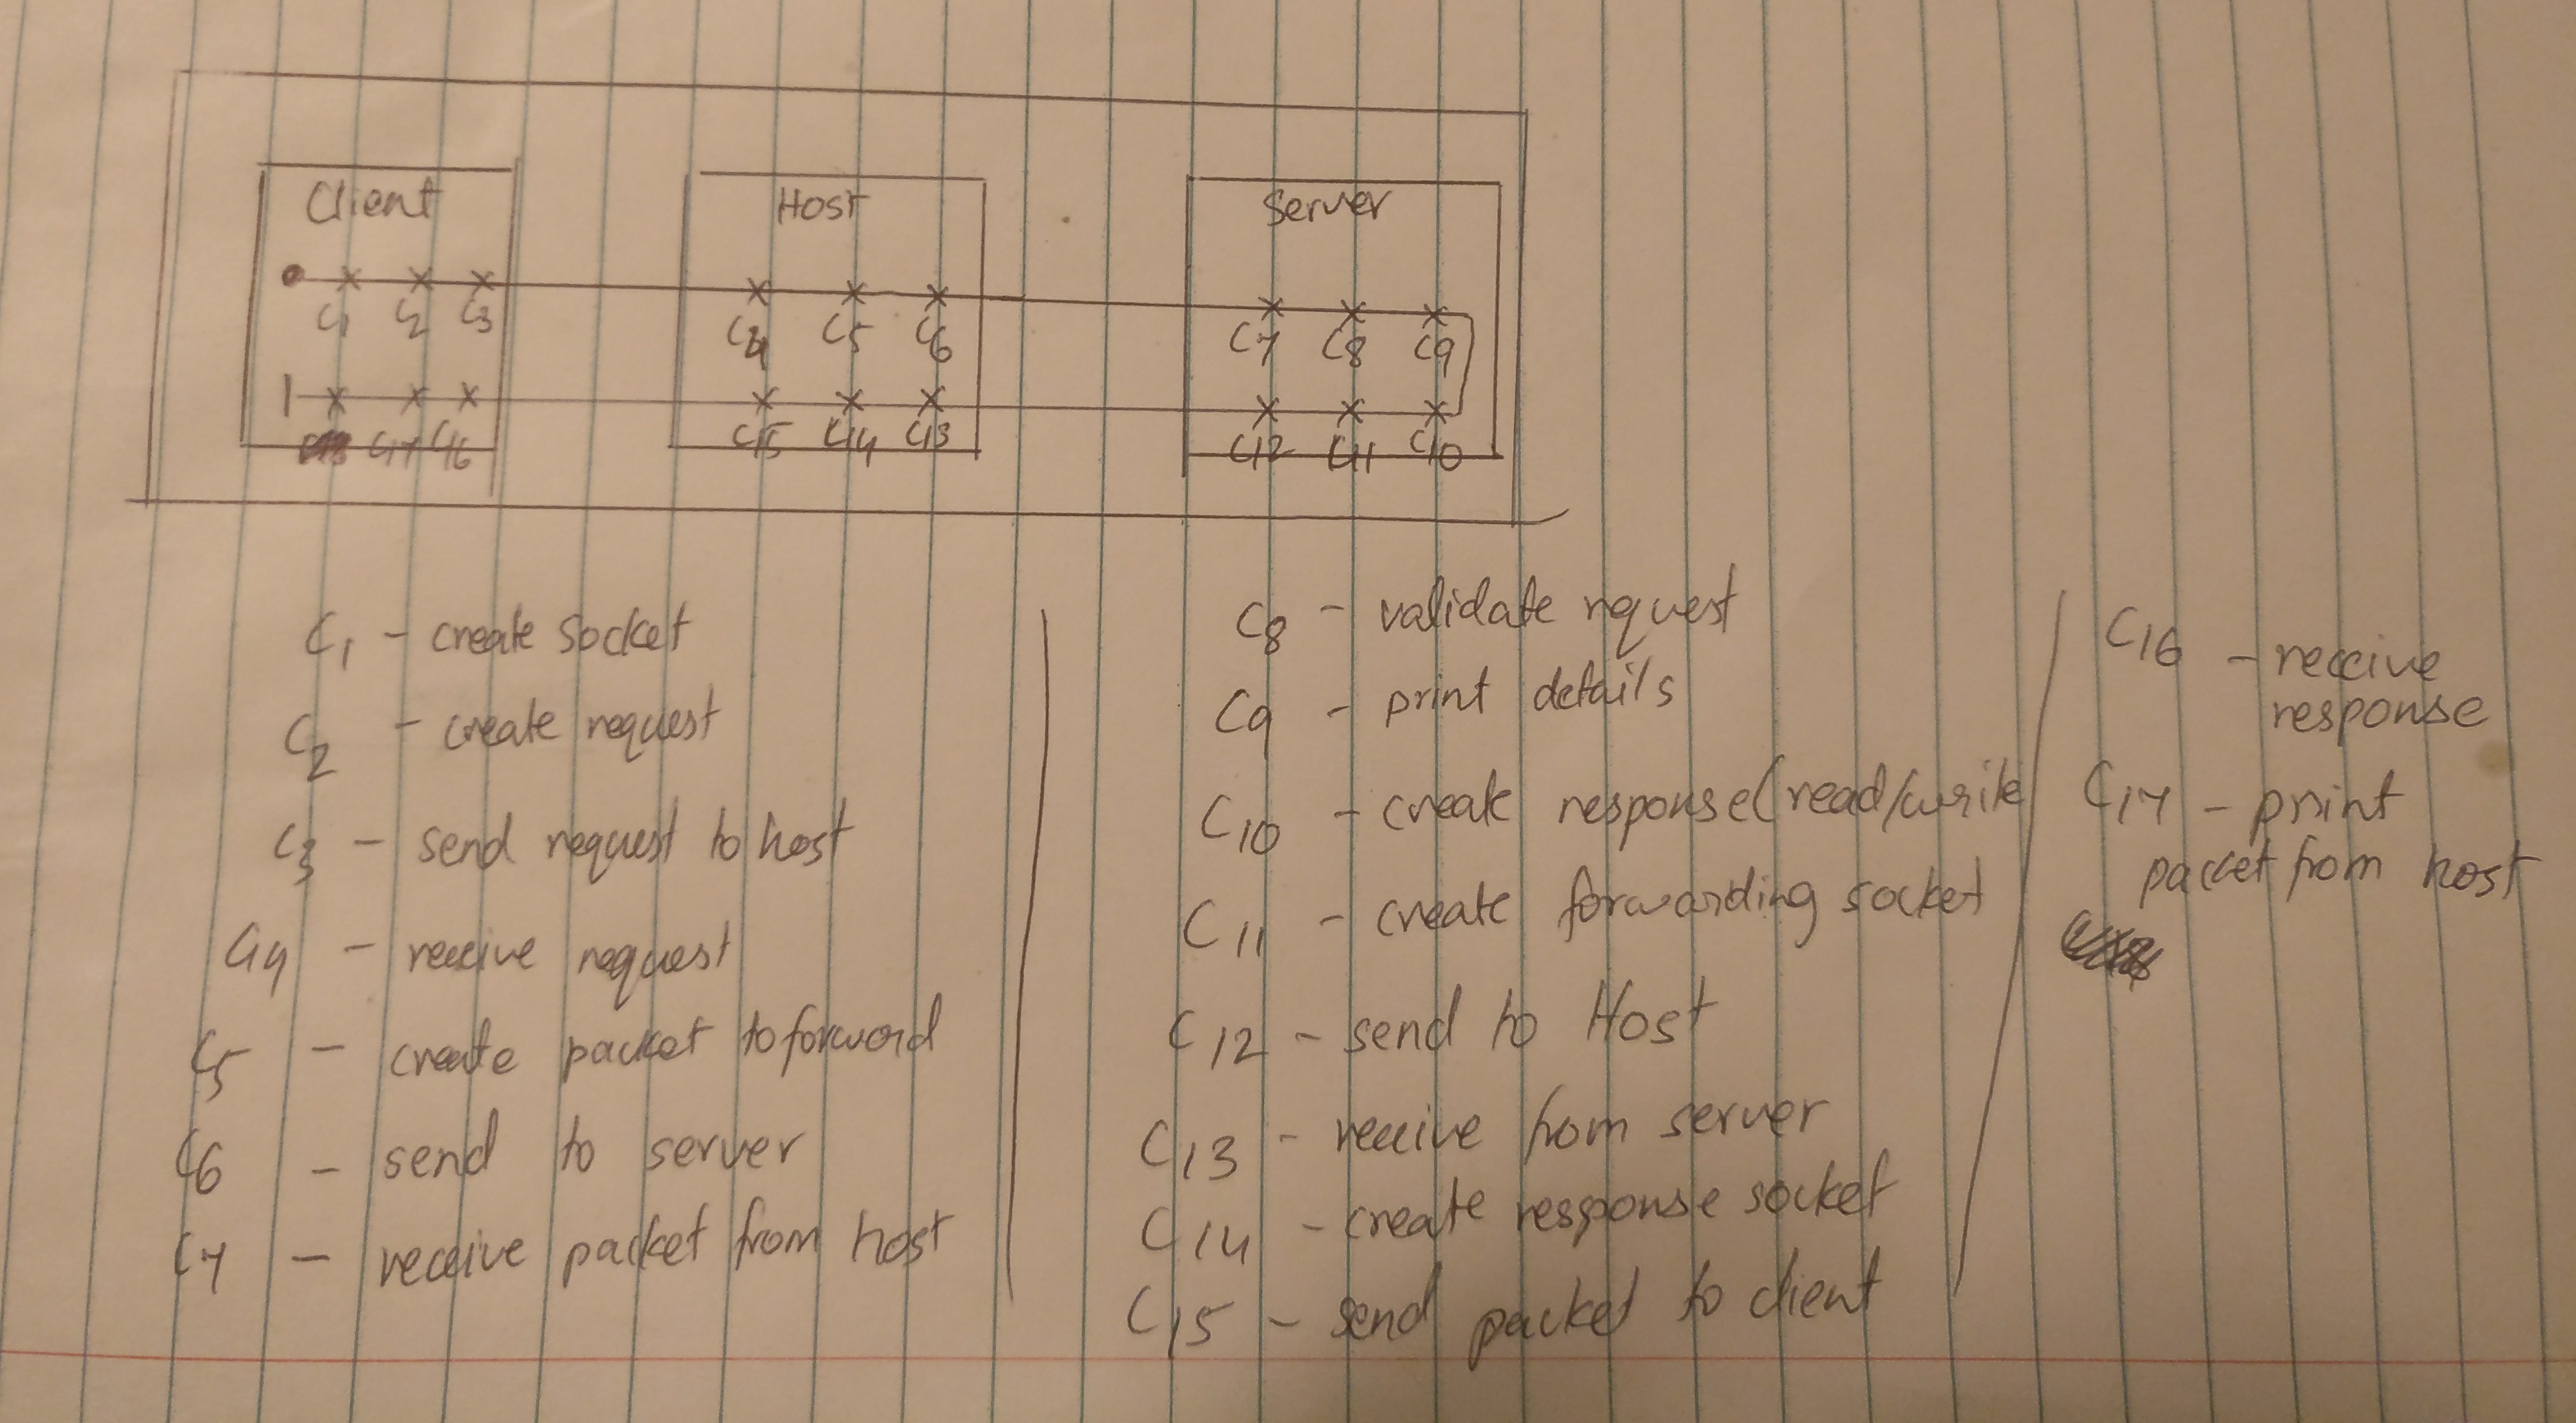 Client
Host
Server
C1 C2 C3
C4 C5 C6
C7 C8 C9
C17 C16
C15 C14 C13
C12 C11 C10
C1 - create socket
C2 - create request
C3 - send request to host
C4 - receive request
C5 - create packet to forword
C6 - send to server
C7 - receive packet from host
C8 - validate request
C9 - print details
C10 - create response(read/write
C11 - create forwarding socket
C12 - send to Host
C13 - receive from server
C14 - create response socket
C15 - send packet to client
C16 - receive
response
C17 - print
packet from host